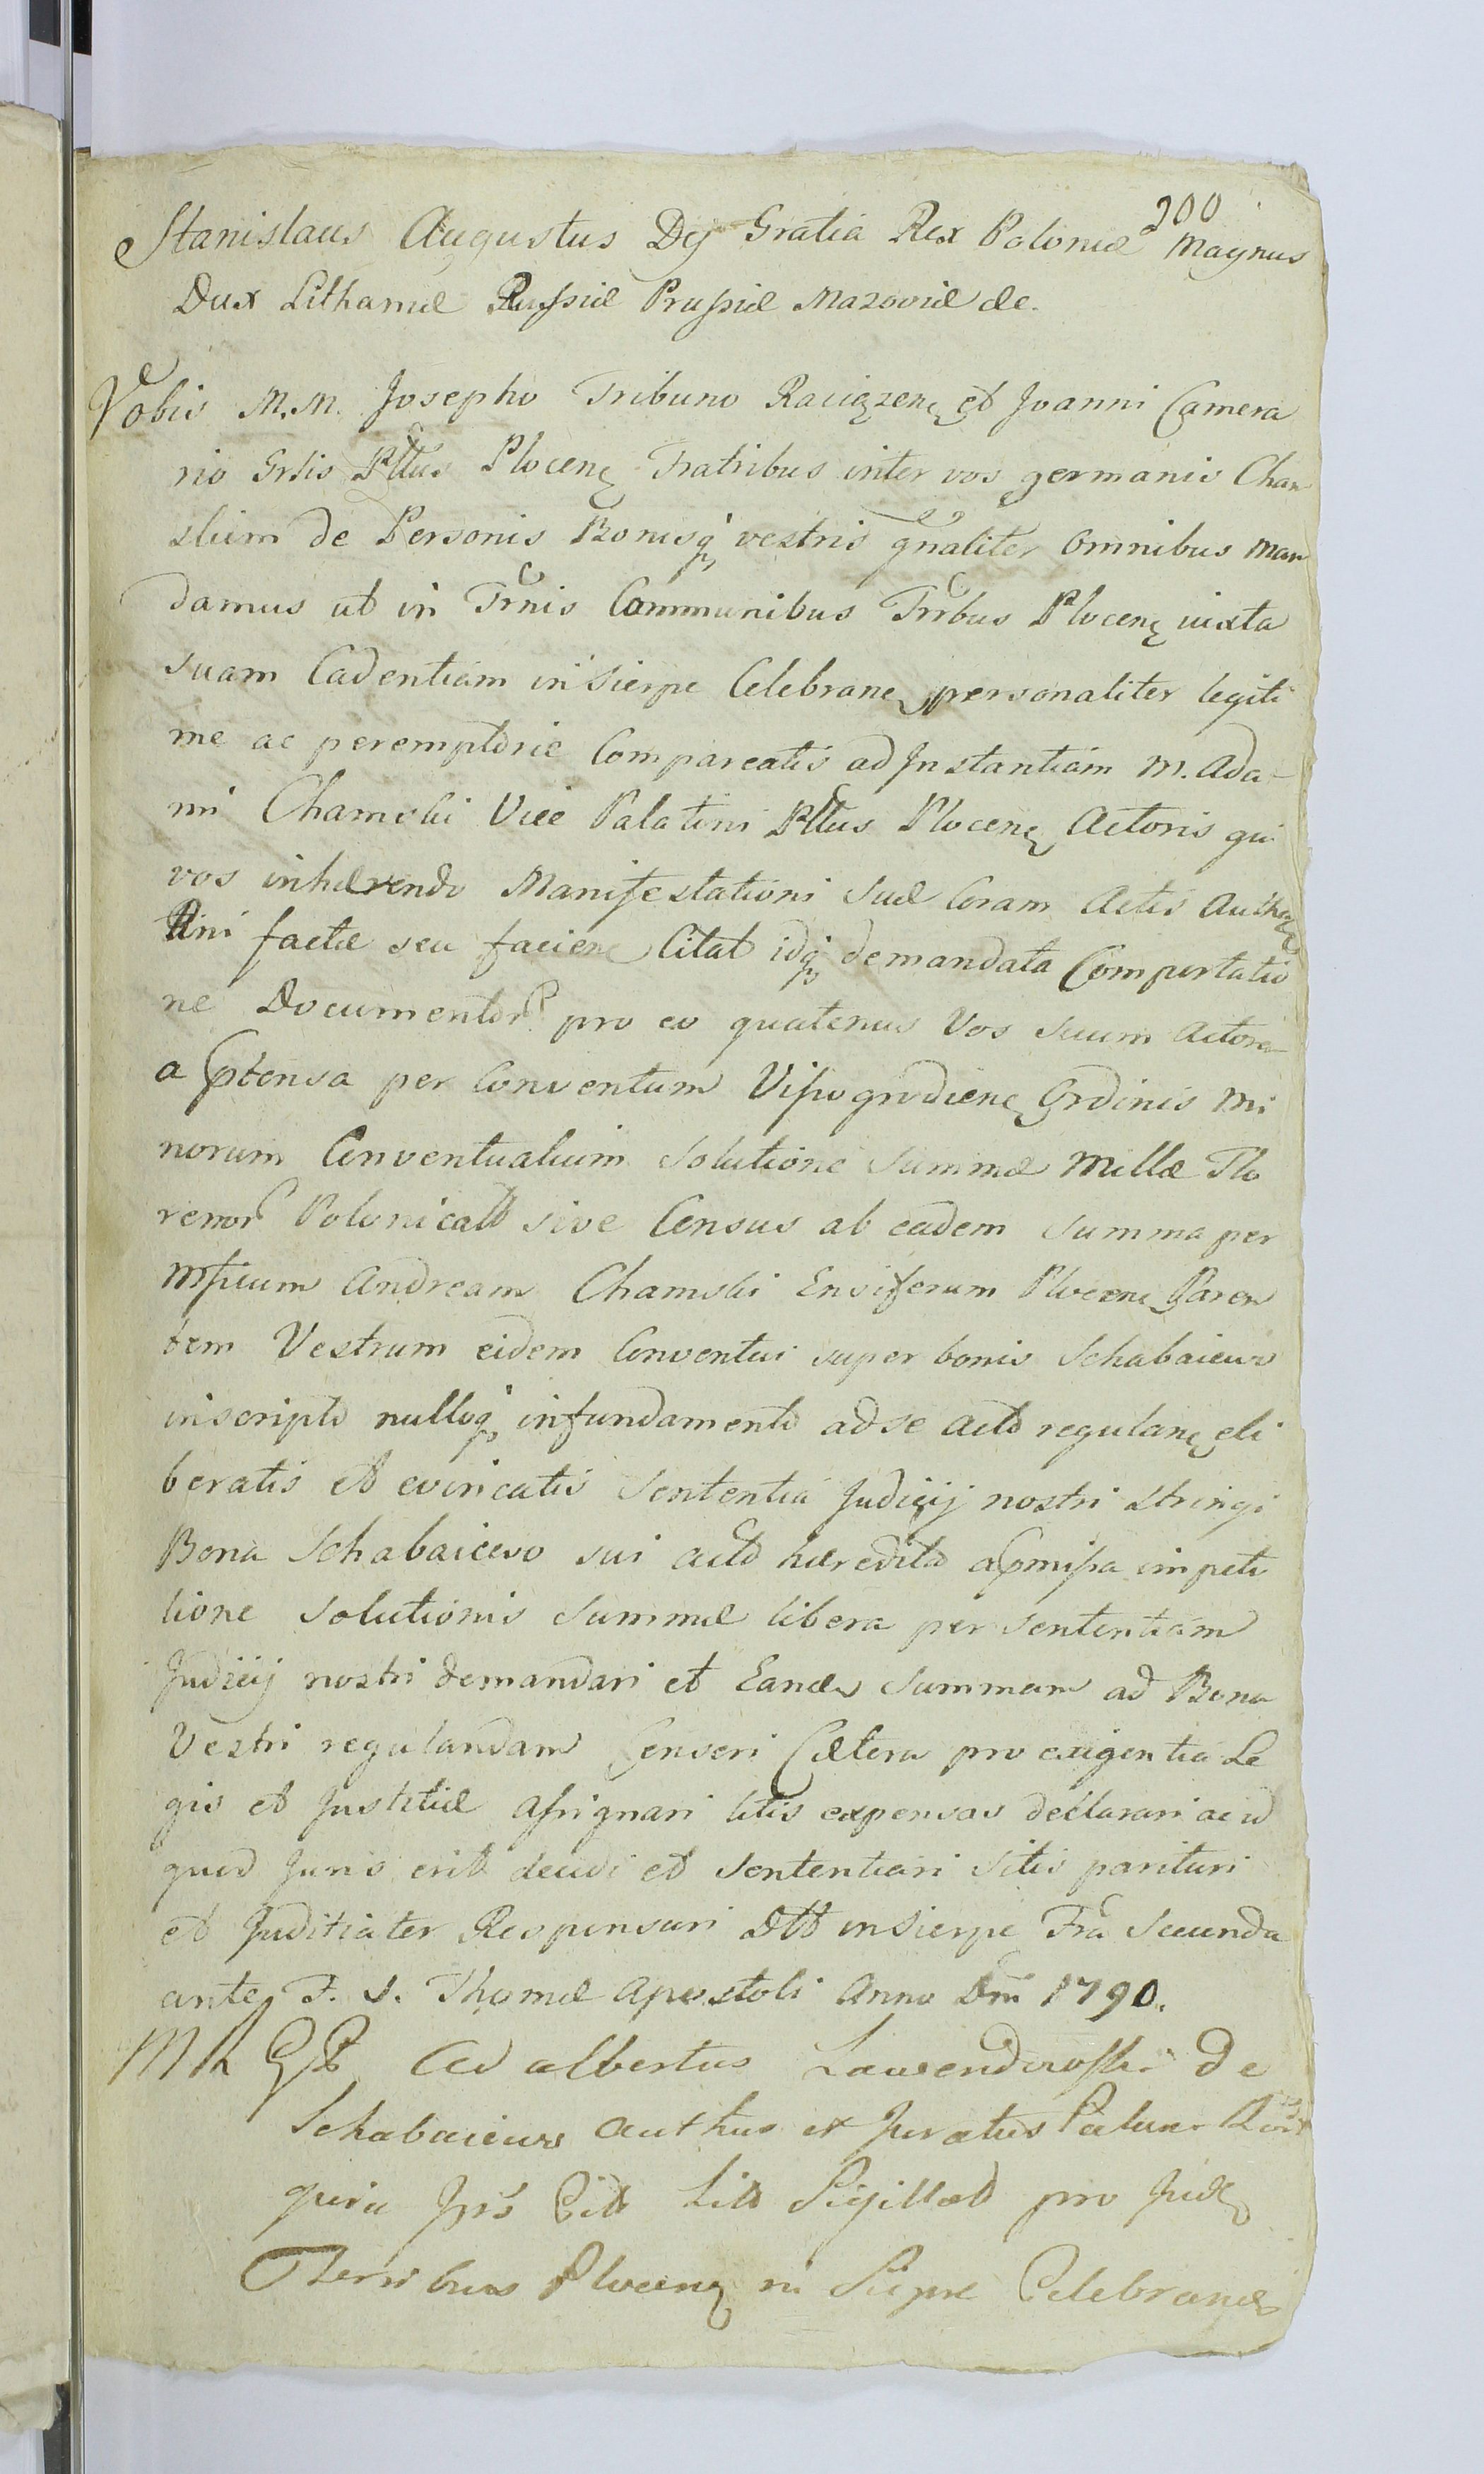 200
Stanislaus Augustus Dej Gratia Rex Poloniæ Magnus
Dux Lithaniæ Russiæ Prussiæ Mazoviæ &c.
Vobis M.M. Josepho Tribuno Raciązen et Joanni Camera
rio Grlis Pttus Plocen Fratribus inter vos germanis Cham
skim de Personis Bonisq vestris gnaliter omnibus man
damus ut in Trnis Communibus Trrbus Plocen iuxta
suam Cadentiam in Sierpc Celebran personaliter legiti
me ac peremptorie Compareatis ad Instantiam M. Ada-
mi Chamski Vice Palatini Pttus Plocen Actoris qui
vos inhærendo Manifestationi suæ Coram Actis Authen
factæ seu facien Citat idq demandata Comportatio
ne Documentor pro eo quatenus Vos suum Actorem
a ptensa per Conventum Vissogrodien Ordinis Mi
norum Conventualium solutione summæ Mille Flo
renor Polonicalt sive Census ab eadem summa per
Mficum Andream Chamski Ensiferum Plocen Paren
tem Vestrum eidem Conventui super bonis Schabaiewo
inscripto nulloq infundamento ad se Acto regulan eli
beratis et evincatis Sententia Judicij nostri stringi
Bona Schabaicewo sui acto hæredita a pmissa impeti
tione solutionis summæ libera per sententiam
Judicij nostri demandari et Eandem summam ad Bona
Vestri regulandam Censeri Cætera pro exigentia Le
gis et Justitiæ assignari litis expensas declarari ac id
quod Juris erit decidi et sententiari sitis parituri
et Juditiater Responsuri Dtt in Sierpc Fra Secunda
ante F. S. Thomæ Apostoli Anno Dni 1790.
Adalbertus de
Schabaiewo et Juratus
pro Jud
Plocen in Sierpc Celebran